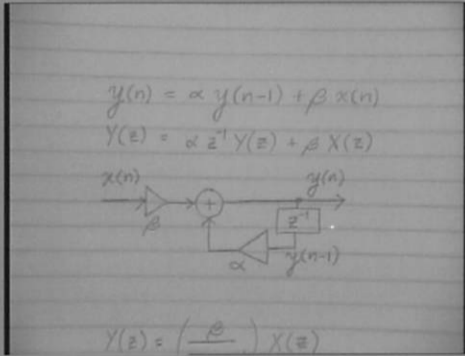 y(n) = α y(n-1) + β x(n)
Y(z) = α z⁻¹ Y(z) + β X(z)
x(n) y(n)
β + z⁻¹
α y(n-1)
Y(z) = ( β ) X(z)